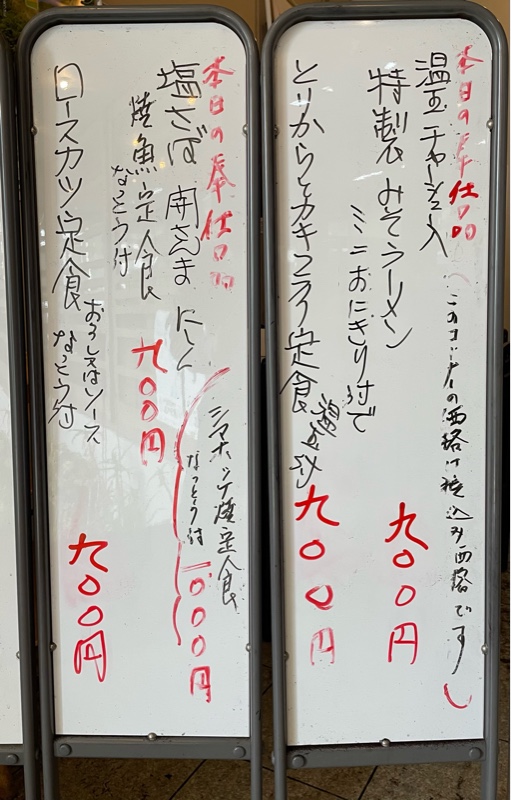 本日の奉仕品
（このコーナーの価格は税込み価格です）
温玉チャーシュー入
特製みそラーメン
ミニおにぎり付で
九〇〇円
とりからとカキフライ定食
温玉付
九〇〇円
本日の奉仕品
塩さば 開さんま にしん
焼魚定食
なっとう付
九〇〇円
シマホッケ焼定食
なっとう付
一〇〇〇円
ロースカツ定食
おろし又はソース
なっとう付
九〇〇円